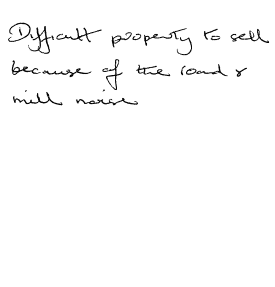 Difficult property to sell
because of the road &
mill noise